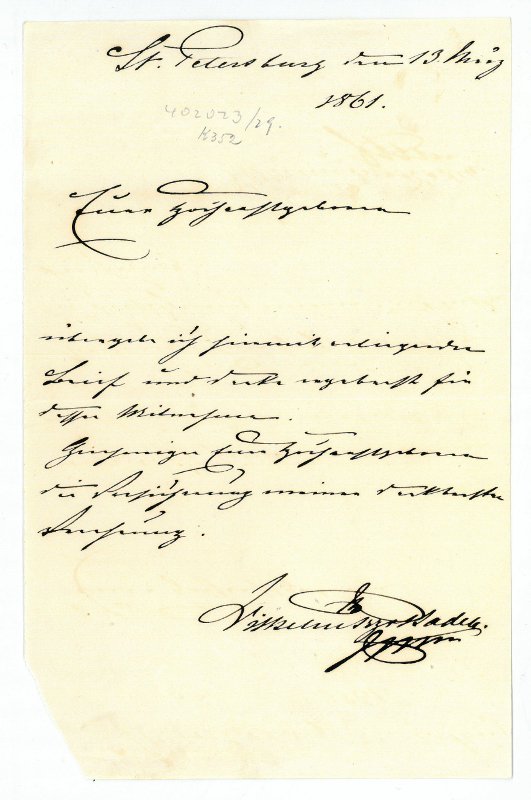 St. Petersburg den 13 März
1861.
402023/29.
K352
Euer Hochwohlgeboren
übergebe ich hiermit anliegenden
Brief und danke ergebenst für
dessen Mitnahme.
Genehmigen Euer Hochwohlgeboren
die Versicherung meiner
Verehrung.
Wilhelm Baden